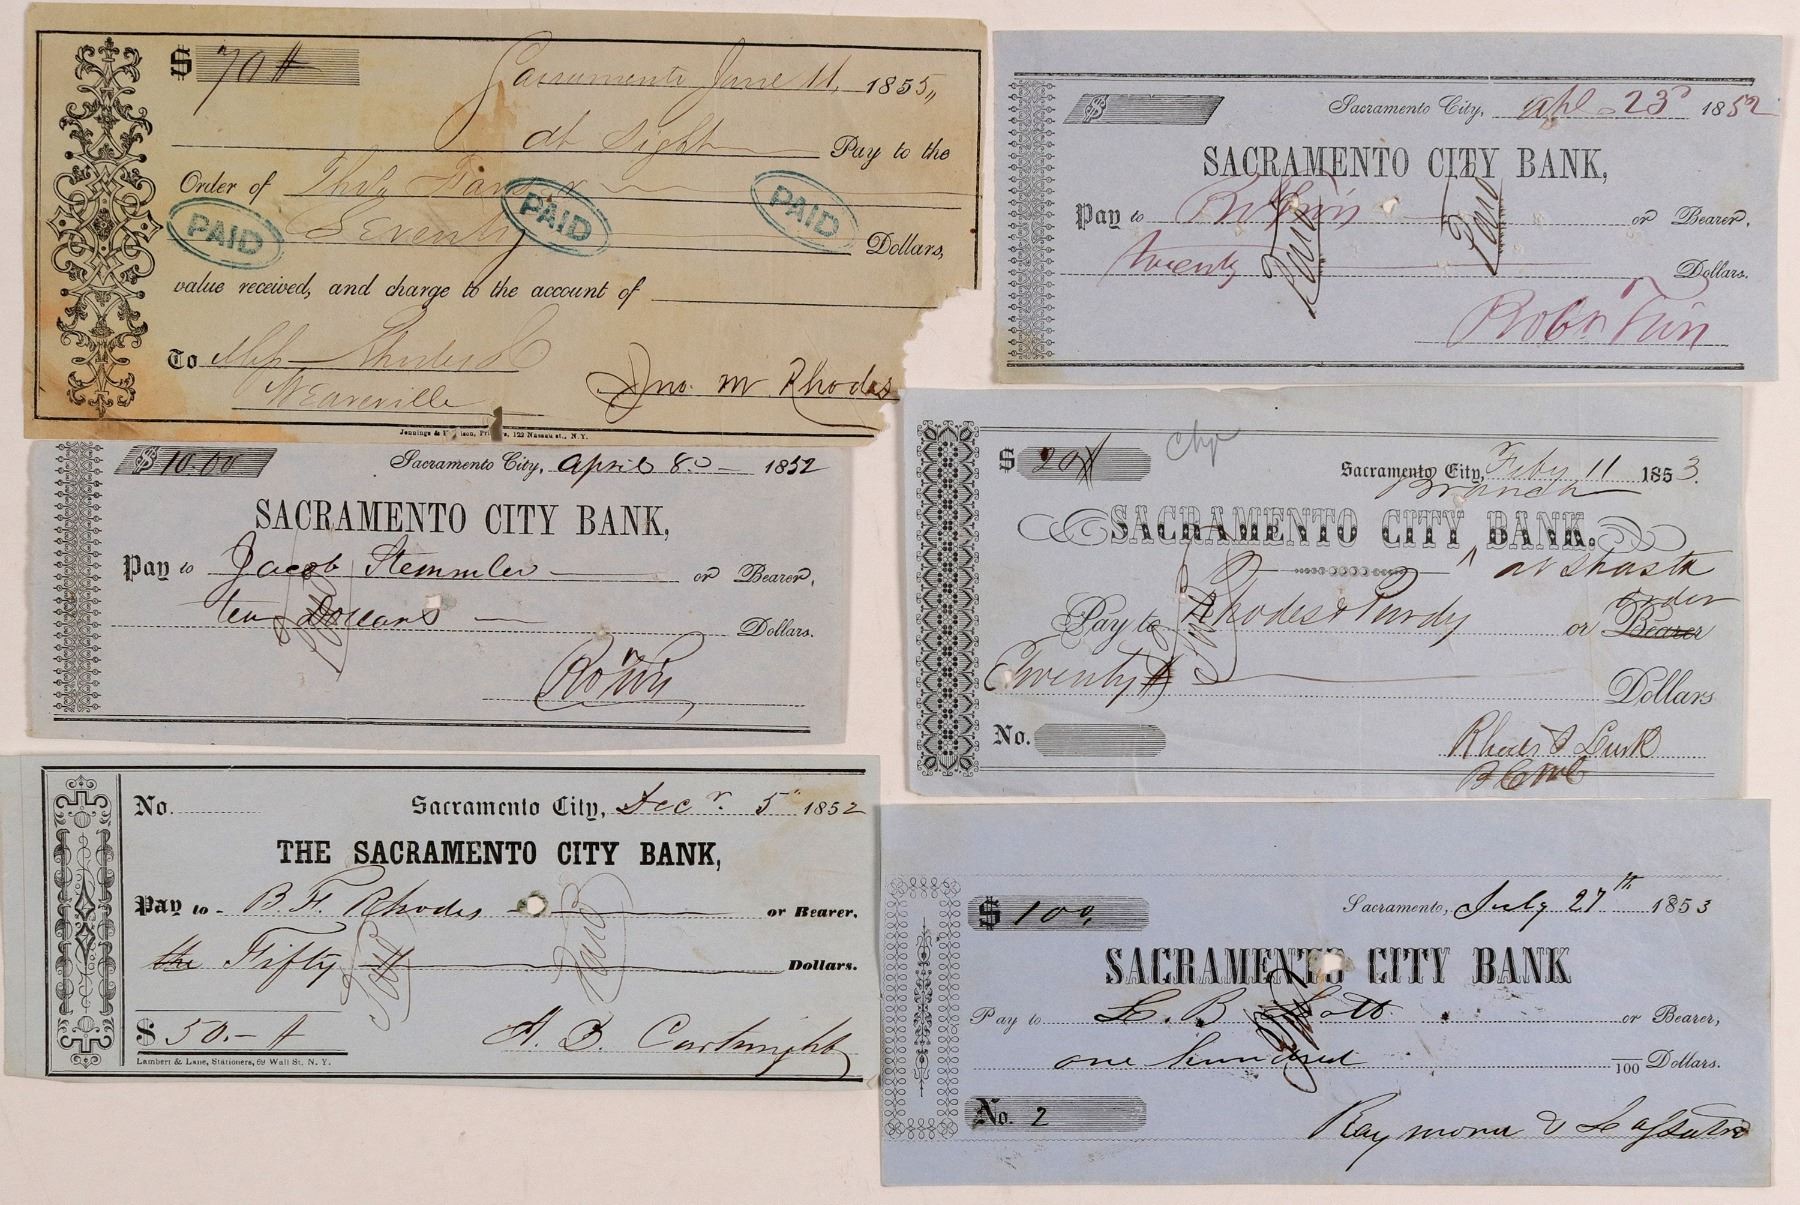 $ 70
Sacramento June 11, 1855,,
at Sight Pay to the
Order of
Seventy Dollars,
PAID
PAID
PAID
value received, and charge to the account of
To
Weaverville
Jno. M. Rhodes
Jennings & Printers, 122 Nassau st., N.Y.
$
Sacramento City, apl 23d 1852
SACRAMENTO CITY BANK,
Pay to or Bearer,
twenty Dollars.
Paid
Paid
$ 10.00
Sacramento City, April 8. 1852
SACRAMENTO CITY BANK,
Pay to Jacob Stemmler or Bearer,
ten Dollars Dollars.
Paid
$ 20
chg
Sacramento City, Feby 11 1853.
Branch
SACRAMENTO CITY BANK.
^ at Shasta
Pay to Rhodes & Purdy or Bearer
order
Twenty Dollars
Paid
No.
Rhodes & Lusk
No.
Sacramento City, Decr. 5" 1852
THE SACRAMENTO CITY BANK,
Pay to B. F. Rhodes or Bearer,
the Fifty Dollars.
Paid
Paid
$ 50.-
A. D. Cartwright
Lambert & Lane, Stationers, 69 Wall St. N. Y.
$ 100,
Sacramento, July 27th 1853
SACRAMENTO CITY BANK
Pay to L. B. Scott or Bearer,
one hundred 100 Dollars.
Paid
No. 2
Raymond &